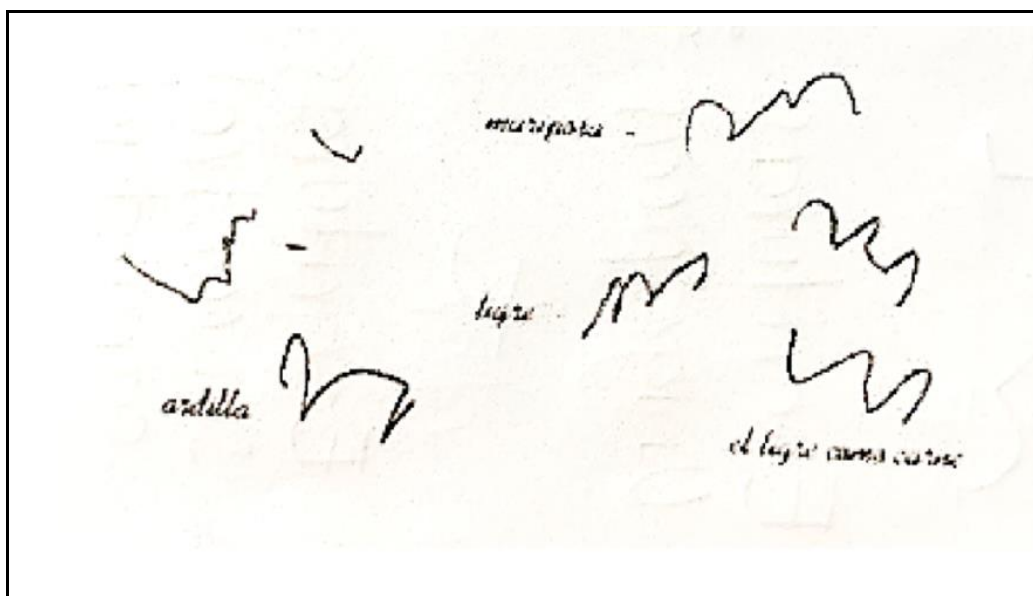 mariposa -
tigre -
ardilla
el tigre come carne